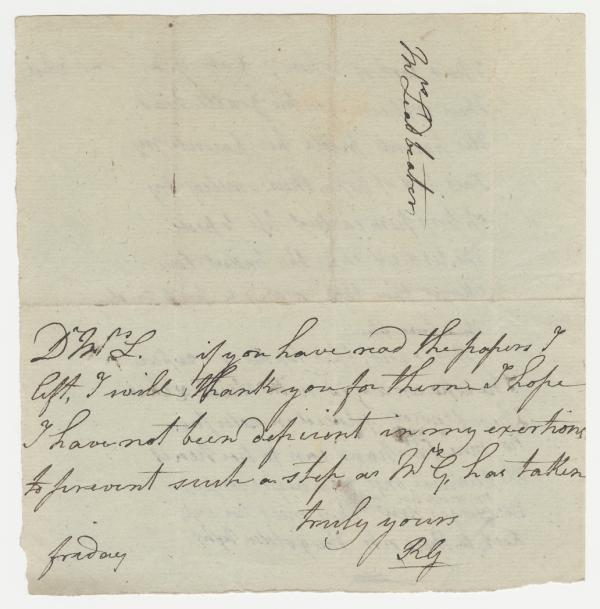 Mrs Leadbeater
Dr Mrs L. if you have read the papers I
left, I will thank you for them. I hope
I have not been deficient in my exertions
to prevent such a step as Mrs G, has taken
truly yours
friday RG